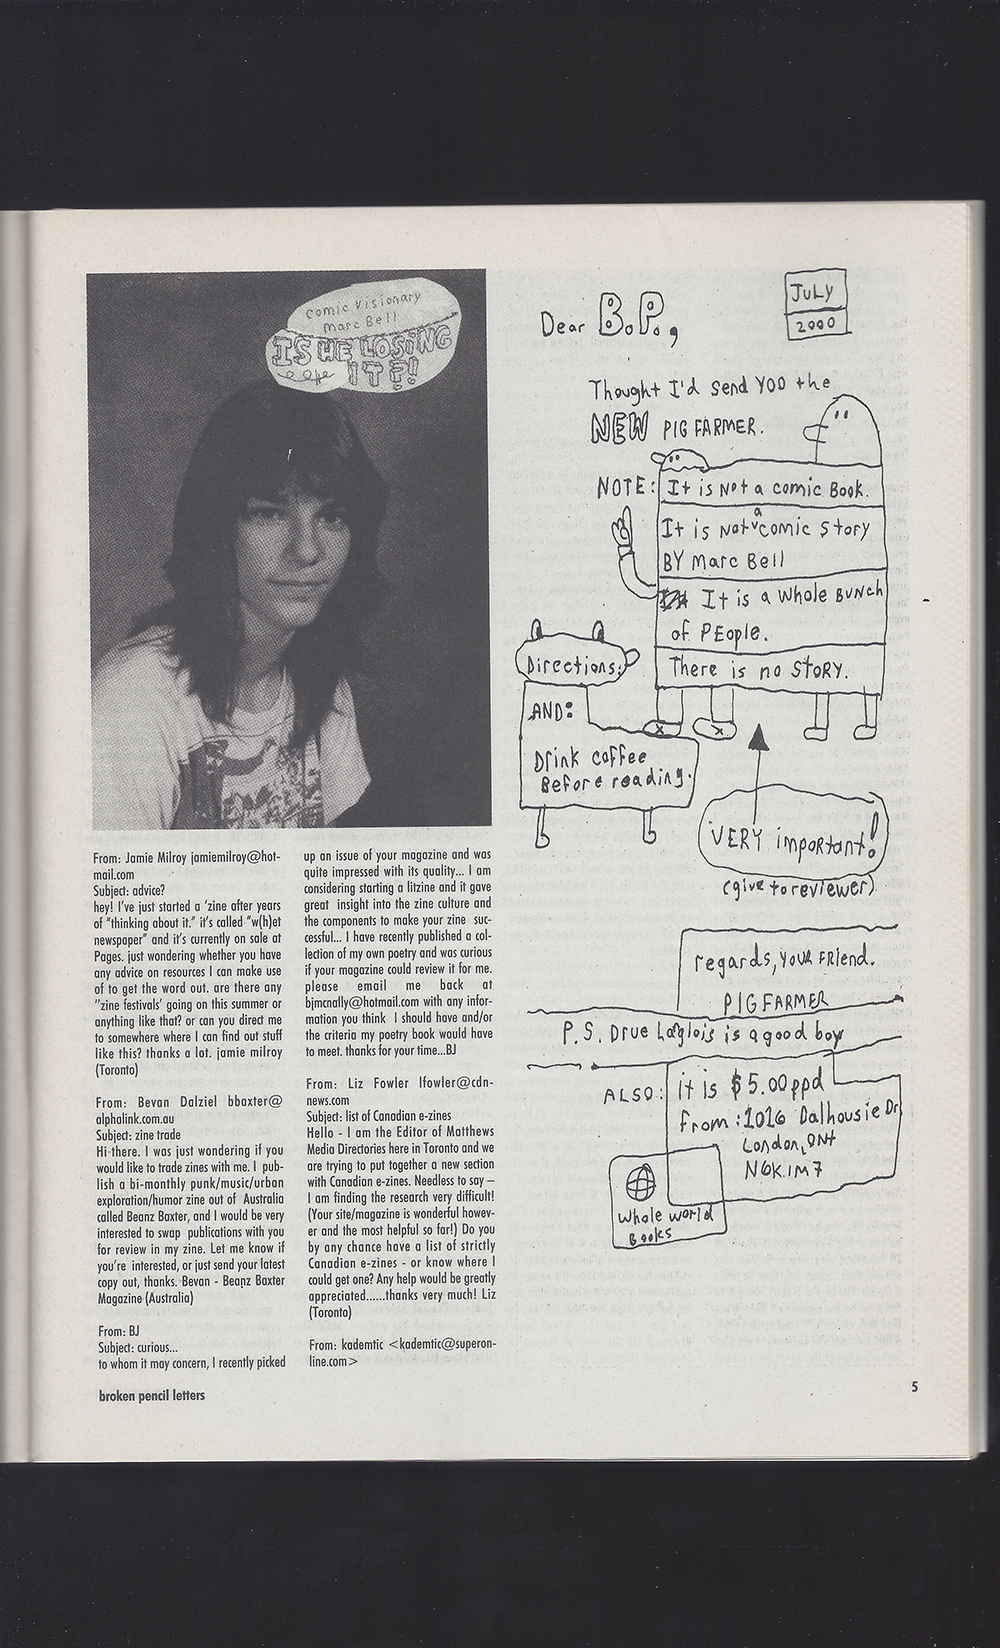 Comic Visionary
Marc Bell
IS HE LOSING
IT?!
From: Jamie Milroy jamiemilroy@hot-
mail.com
Subject: advice?
hey! I've just started a 'zine after years
of "thinking about it." it's called "w(h)et
newspaper" and it's currently on sale at
Pages. just wondering whether you have
any advice on resources I can make use
of to get the word out. are there any
"zine festivals' going on this summer or
anything like that? or can you direct me
to somewhere where I can find out stuff
like this? thanks a lot. jamie milroy
(Toronto)
From: Bevan Dalziel bbaxter@
alphalink.com.au
Subject: zine trade
Hi there. I was just wondering if you
would like to trade zines with me. I pub-
lish a bi-monthly punk/music/urban
exploration/humor zine out of Australia
called Beanz Baxter, and I would be very
interested to swap publications with you
for review in my zine. Let me know if
you're interested, or just send your latest
copy out, thanks. Bevan - Beanz Baxter
Magazine (Australia)
From: BJ
Subject: curious...
to whom it may concern, I recently picked
up an issue of your magazine and was
quite impressed with its quality... I am
considering starting a litzine and it gave
great insight into the zine culture and
the components to make your zine suc-
cessful... I have recently published a col-
lection of my own poetry and was curious
if your magazine could review it for me.
please email me back at
bjmcnally@hotmail.com with any infor-
mation you think I should have and/or
the criteria my poetry book would have
to meet. thanks for your time...BJ
From: Liz Fowler lfowler@cdn-
news.com
Subject: list of Canadian e-zines
Hello - I am the Editor of Matthews
Media Directories here in Toronto and we
are trying to put together a new section
with Canadian e-zines. Needless to say –
I am finding the research very difficult!
(Your site/magazine is wonderful howev-
er and the most helpful so far!) Do you
by any chance have a list of strictly
Canadian e-zines - or know where I
could get one? Any help would be greatly
appreciated......thanks very much! Liz
(Toronto)
From: kademtic <kademtic@superon-
line.com>
Dear B.P.,
JULY
2000
Thought I'd send YOO the
NEW PIG FARMER.
NOTE: It is Not a comic Book.
It is Not a comic Story
BY Marc Bell
It is a whole BUNCH
of PEOple.
There is no STORY.
Directions:
AND:
Drink coffee
Before reading.
VERY important!
(give to reviewer)
regards, YOUR FRIend.
PIGFARMER
P.S. Drue Langlois is a good boy
ALSO: it is $5.00 ppd
From: 1016 Dalhousie Dr
London, ONT
N6K.1M7
Whole World
Books
broken pencil letters
5